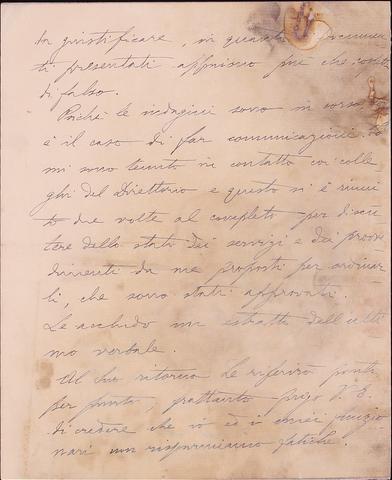 da giustificare, in quanto i documen
ti presentati appaiono più che sospetti
di falso.
Poiché le indagini sono in corso non
è il caso di far comunicazioni. Io
mi sono tenuto in contatto coi colle
ghi del Direttorio e questo si è riuni
to due volte al completo per discu
tere dello stato dei servizi e dei provve
dimenti da me proposti per ordinar
li, che sono stati approvati.
Le accludo un estratto dell'ulti
mo verbale.
Al suo ritorno Le riferirò punto
per punto, frattanto prego V. E.
di credere che io ed i miei funzio
nari non risparmiamo fatiche.